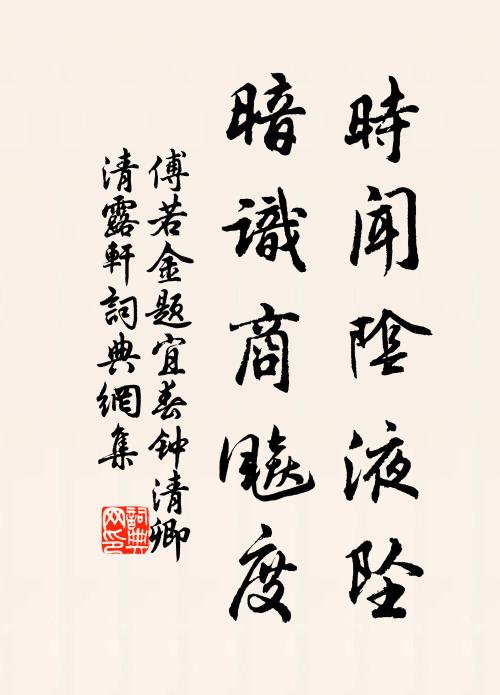 時聞陰液坠
暗識商飈度
傅若金题宜春钟清卿
清露軒詞典網集
詞典网印